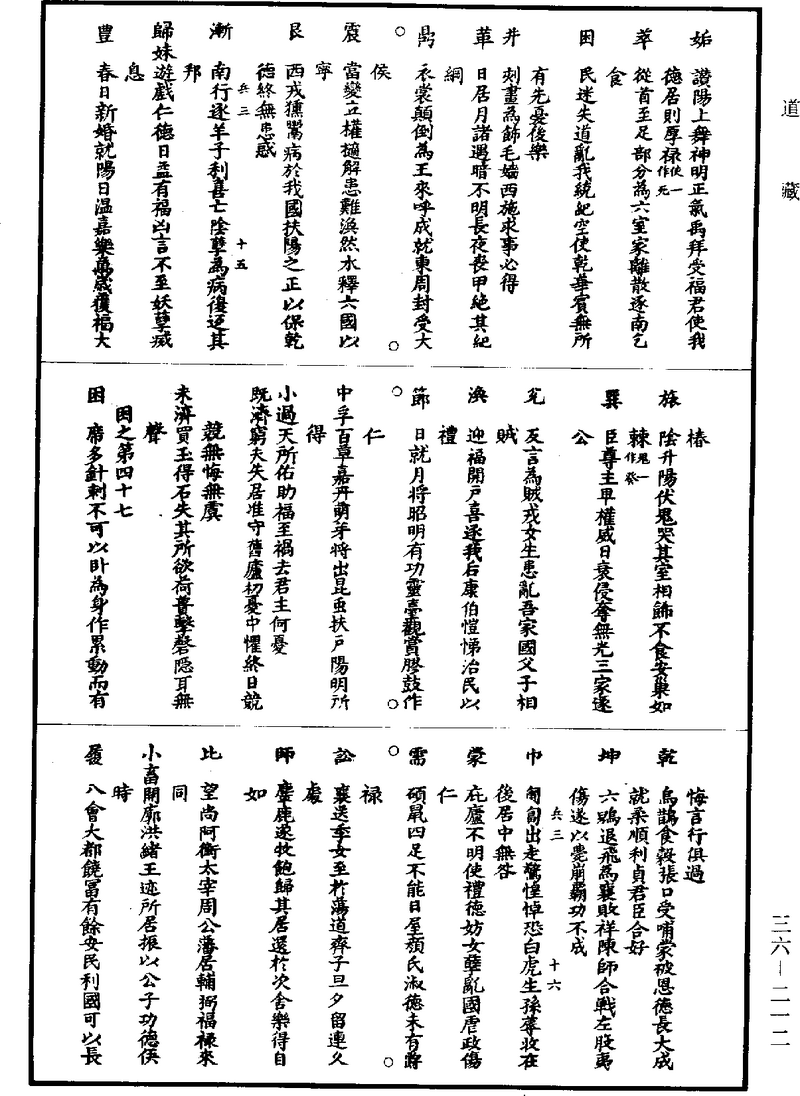 道藏
三六—二一二
姤　讚陽上舞神明正氣禹拜受福君使我
德居則厚祿使一作死
萃　從首至足部分為六室家離散逐南乞
食
困　民迷失道亂我統紀空使乾華賓無所
有先憂後樂
井　刻畫為飾毛嬙西施求事必得
革　日居月諸遇暗不明長夜喪甲絕其紀
綱
鼎　衣裳顛倒為王來呼成就東周封受大
○　侯　○
震　當變立權擿解患難渙然氷釋六國以
寧
艮　西戎獯鬻病於我國扶陽之正以保乾
德終無患惑
兵三　十五
漸　南行逐羊子利喜亡陰孽為病復返其
邦
歸妹遊戲仁德日益有福凶言不至妖孽滅
息
豐　春日新婚就陽日溫嘉樂萬歲獲福大
椿
旅　陰升陽伏鬼哭其室相飾不食安巢如
棘鬼一作癸
巽　臣尊主卑權威日衰侵奪無光三家逐
公
兌　反言為賊戎女生患亂吾家國父子相
賊
渙　迎福開戶喜逐我后康伯愷悌治民以
禮
節　日就月將昭明有功靈臺觀賞膠鼓作
○　仁　○
中孚百草嘉卉萌芽將出昆虫扶戶陽明所
得
小過天所佑助福至禍去君主何憂
既濟窮夫失居准守舊廬初憂中懼終日兢
兢無悔無虞
未濟買玉得石失其所欲荷蕢擊磬隱耳無
聲
困之第四十七
困　席多針刺不可以卧為身作累動而有
悔言行俱過
乾　烏鵲食穀張口受哺蒙被恩德長大成
就柔順利貞君臣合好
坤　六鷁退飛為襄敗祥陳師合戰左股夷
傷遂以薨崩霸功不成
兵三　十六
屯　匍匐出走驚惶悼恐白虎生孫蓐收在
後居中無咎
蒙　庇廬不明使禮德妨女孽亂國虐政傷
仁
需　碩鼠四足不能日屋顏氏淑德未有爵
○　祿　○
訟　襄送季女至於蕩道齊子旦夕留連久
處
師　麞鹿逐牧飽歸其居還於次舍樂得自
如
比　望尚阿衡太宰周公藩居輔弼福祿來
同
小畜開廓洪緒王迹所居振以公子功德俟
時
履　八會大都饒冨有餘安民利國可以長